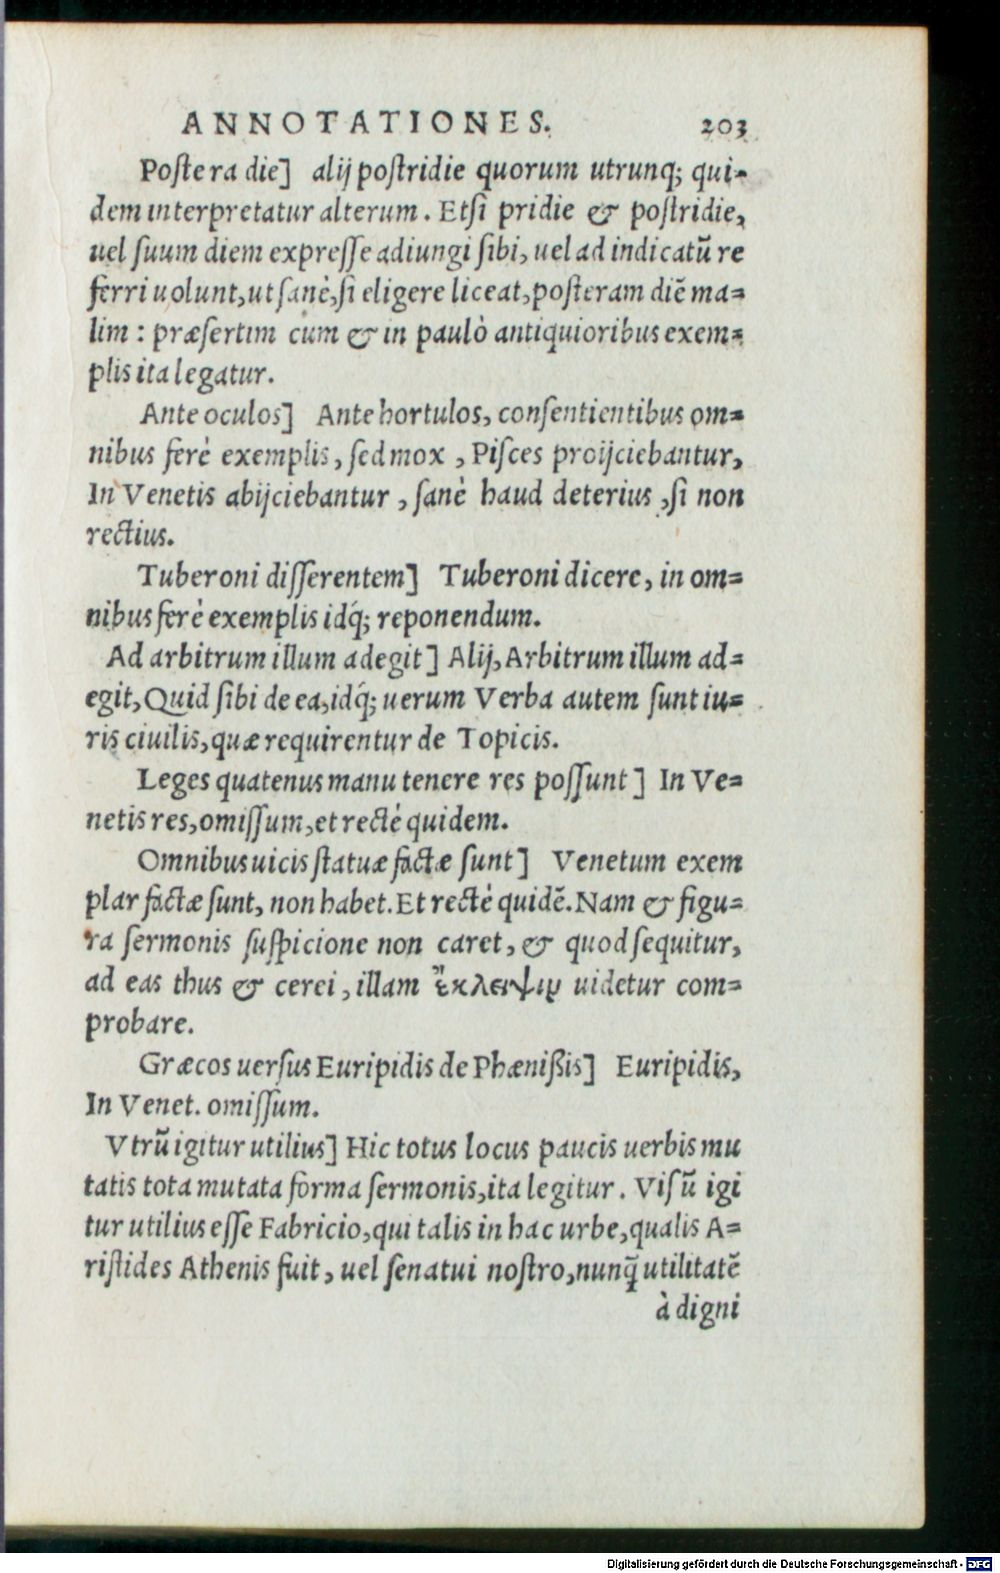 ANNOTATIONES. 203
Postera die] alij postridie quorum utrunq; qui-
dem interpretatur alterum. Etsi pridie & postridie,
uel suum diem expresse adiungi sibi, uel ad indicatũ re
ferri uolunt, ut sanè, si eligere liceat, posteram diẽ ma=
lim : præsertim cum & in paulò antiquioribus exem=
plis ita legatur.
Ante oculos] Ante hortulos, consentientibus om=
nibus ferè exemplis, sed mox , Pisces proijciebantur,
In Venetis abijciebantur , sanè haud deterius , si non
rectius.
Tuberoni disserentem] Tuberoni dicere, in om=
nibus ferè exemplis idq́; reponendum.
Ad arbitrum illum adegit] Alij, Arbitrum illum ad=
egit, Quid sibi de ea, idq́; uerum Verba autem sunt iu=
ris ciuilis, quæ requirentur de Topicis.
Leges quatenus manu tenere res possunt] In Ve=
netis res, omissum, et rectè quidem.
Omnibus uicis statuæ factæ sunt] Venetum exem
plar factæ sunt, non habet. Et rectè quidẽ. Nam & figu=
ra sermonis suspicione non caret, & quod sequitur,
ad eas thus & cerei, illam ἔκλειψιν uidetur com=
probare.
Græcos uersus Euripidis de Phœnißis] Euripidis,
In Venet. omissum.
Vtrũ igitur utilius] Hic totus locus paucis uerbis mu
tatis tota mutata forma sermonis, ita legitur. Visũ igi
tur utilius esse Fabricio, qui talis in hac urbe, qualis A=
ristides Athenis fuit, uel senatui nostro, nunq̃ utilitatẽ
à digni
Digitalisierung gefördert durch die Deutsche Forschungsgemeinschaft - DFG